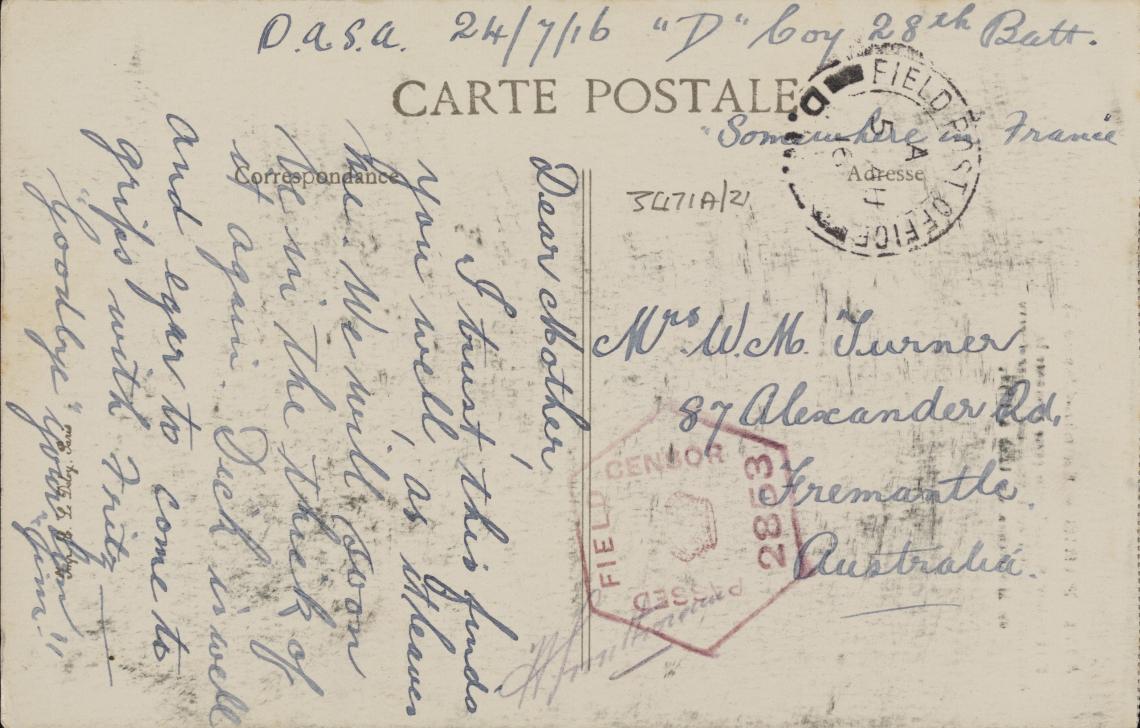 D.A.S.A. 24/7/16 "D" Coy 28th Batt.
CARTE POSTALE
"Somewhere in France
Correspondance
Adresse
3471A/21
FIELD POST OFFICE
5 A
16
Dear Mother,
I trust this finds
you well, as it leaves
me. We will soon
be in the thick of
it again. Dick is well
and egar to come to
grips with Fritz
"Goodbye" Your son
"Jim".
Mrs. W.M. Turner
87 Alexander Rd,
Fremantle.
Australia.
PASSED
FIELD CENSOR
2853